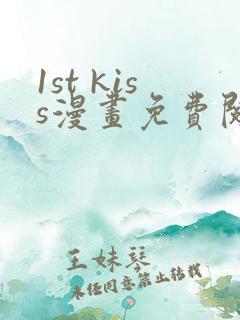 1st kis
s漫畫免費閱
王妹琴
未經同意禁止轉載